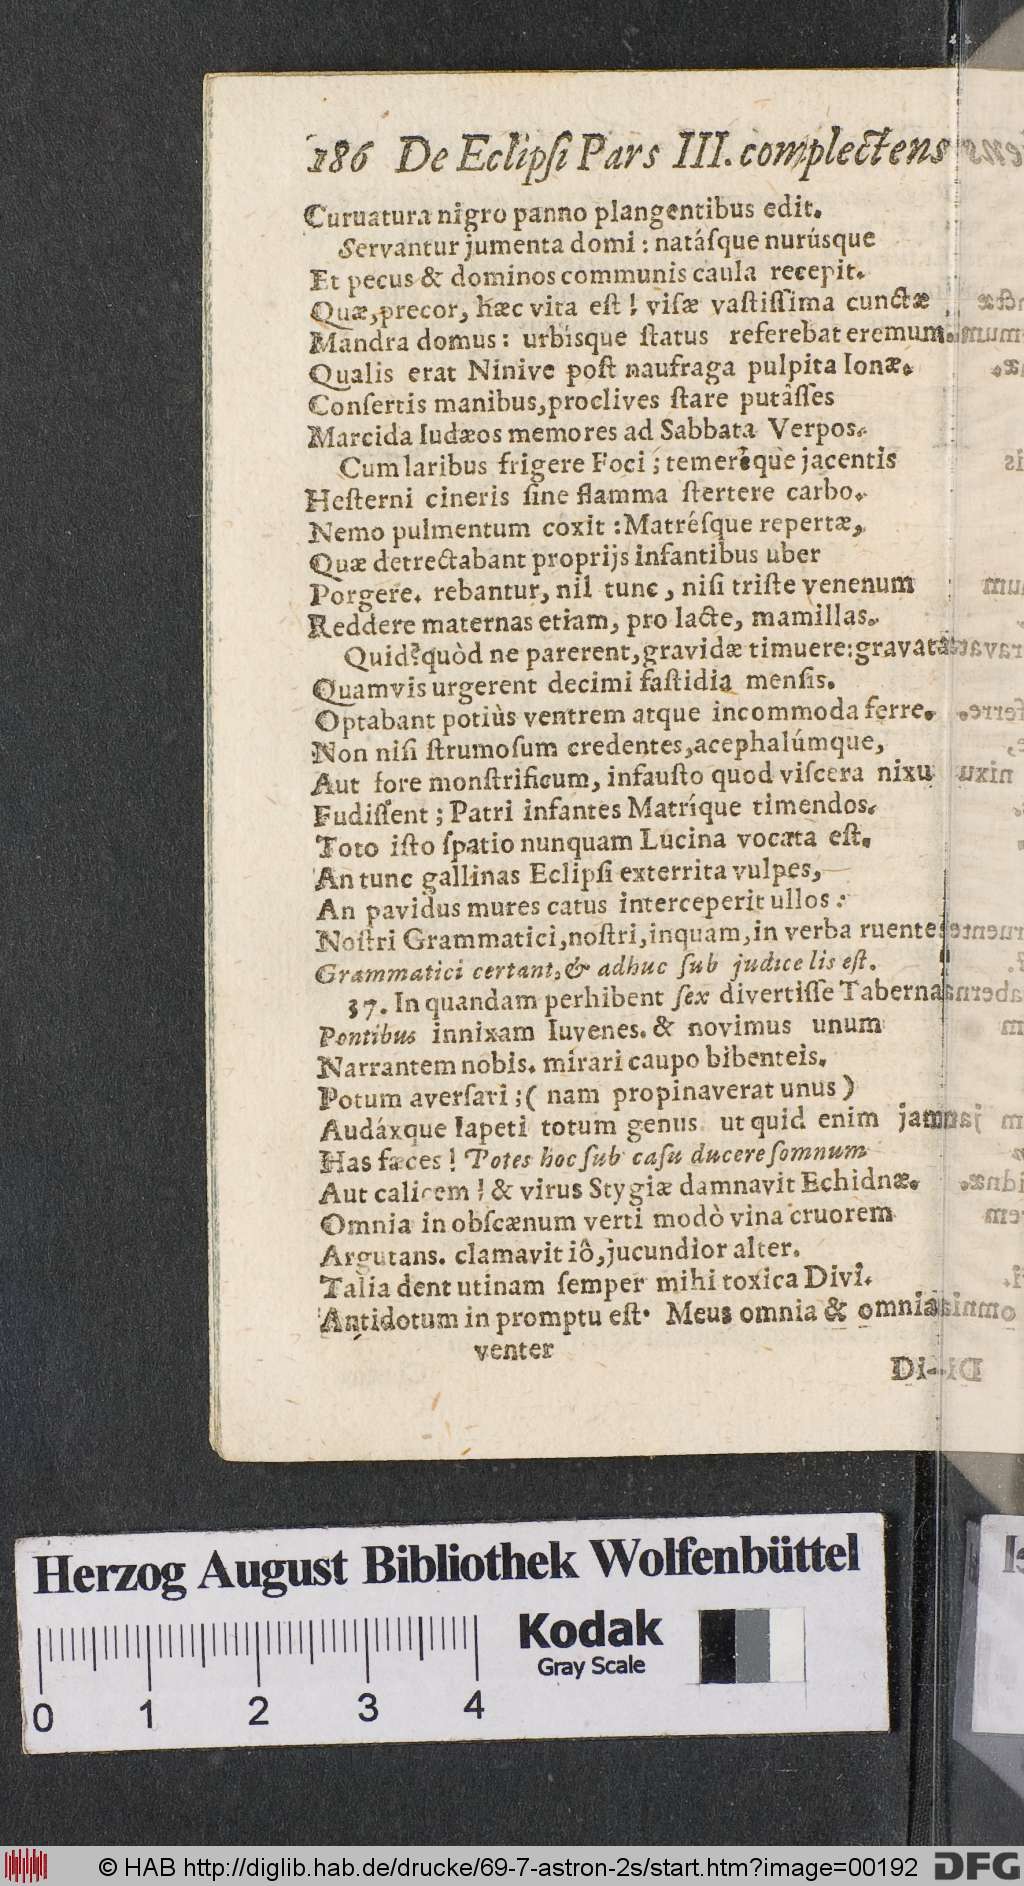 186 De Eclipſi Pars III. complectens
Curuatura nigro panno plangentibus edit.
Servantur jumenta domi : natáſque nurúsque
Et pecus & dominos communis caula recepit.
Quæ, precor, hæc vita eſt ! viſæ vaſtiſſima cunctæ
Mandra domus : urbisque ſtatus referebat eremum.
Qualis erat Ninive poſt naufraga pulpita Ionæ.
Conſertis manibus, proclives ſtare putâſſes
Marcida Iudæos memores ad Sabbata Verpos.
Cum laribus frigere Foci ; temerèque jacentis
Heſterni cineris ſine flamma ſtertere carbo.
Nemo pulmentum coxit : Matréſque repertæ,
Quæ detrectabant proprijs infantibus uber
Porgere. rebantur, nil tunc, niſi triſte venenum
Reddere maternas etiam, pro lacte, mamillas.
Quid? quòd ne parerent, gravidæ timuere:
Quamvis urgerent decimi faſtidia menſis.
Optabant potiùs ventrem atque incommoda ferre.
Non niſi ſtrumoſum credentes, acephalúmque,
Aut fore monſtrificum, infauſto quod viſcera nixu
Fudiſſent ; Patri infantes Matríque timendos.
Toto iſto ſpatio nunquam Lucina vocata eſt.
An tunc gallinas Eclipſi exterrita vulpes,
An pavidus mures catus interceperit ullos :
Noſtri Grammatici, noſtri, inquam, in verba ruente
Grammatici certant, & adhuc ſub judice lis eſt.
37. In quandam perhibent ſex divertiſſe Taberna
Pontibus innixam Iuvenes. & novimus unum
Narrantem nobis. mirari caupo bibenteis.
Potum averſari ; ( nam propinaverat unus )
Audáxque Iapeti totum genus ut quid enim jam
Has fæces ! Potes hoc ſub caſu ducere ſomnum
Aut calicem ! & virus Stygiæ damnavit Echidnæ.
Omnia in obſcænum verti modò vina cruorem
Argutans. clamavit iô, jucundior alter.
Talia dent utinam ſemper mihi toxica Divi.
Antidotum in promptu eſt. Meus omnia & omnia
venter
Di-
Herzog August Bibliothek Wolfenbüttel
Kodak
Gray Scale
0 1 2 3 4
© HAB http://diglib.hab.de/drucke/69-7-astron-2s/start.htm?image=00192
DFG